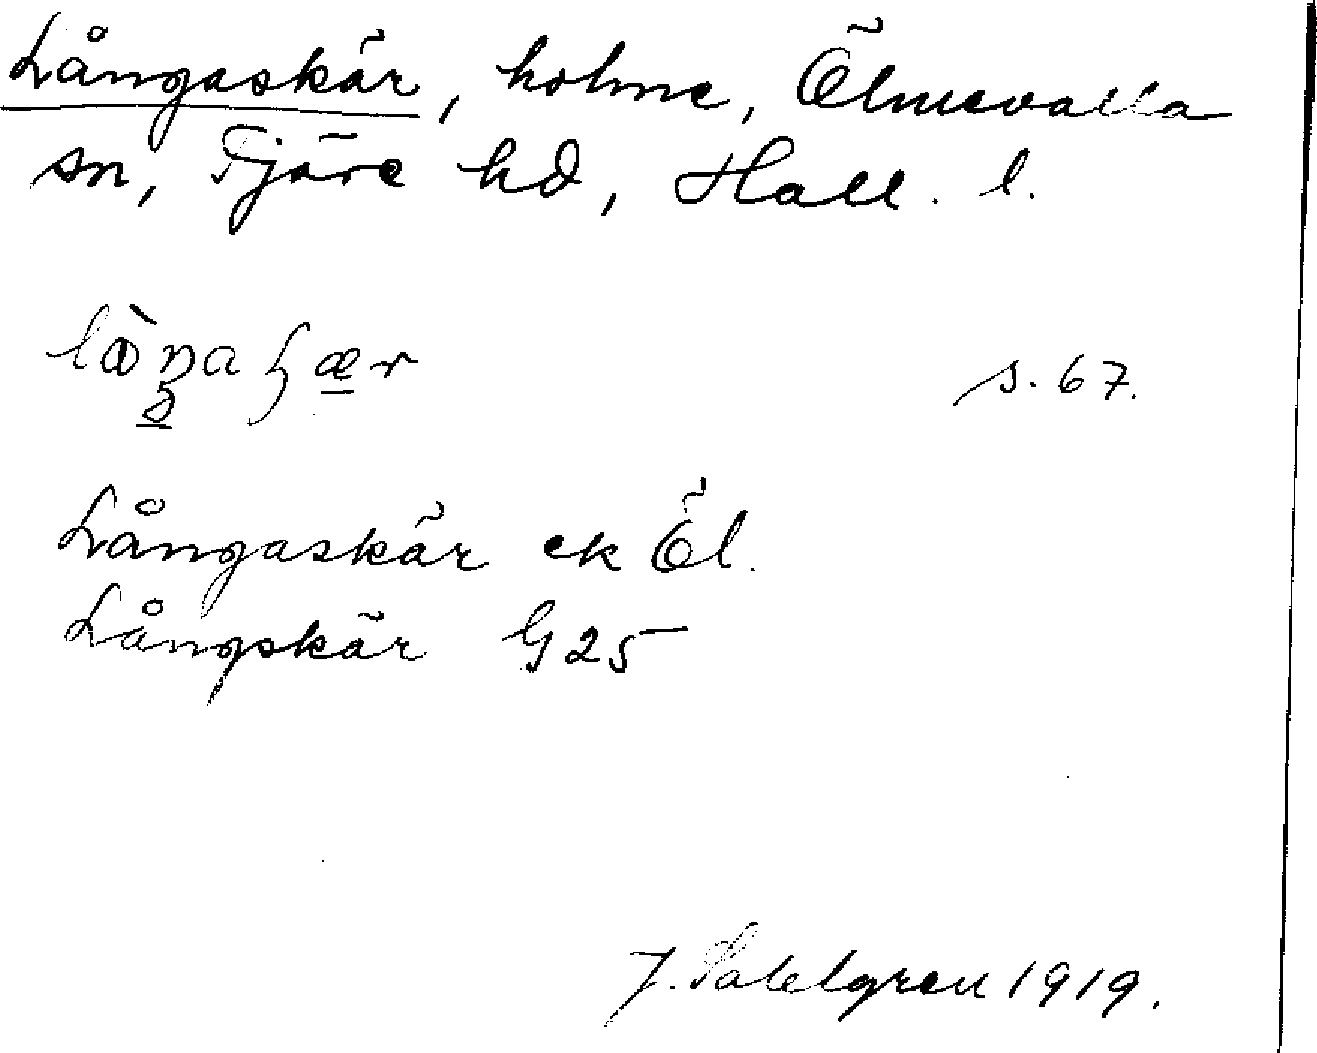 Långaskär, holme, Ölmevalla
sn, Fjäre hd, Hall. l.
s. 67.
Långaskär ek Öl.
Långskär G 25
J. Sahlgren 1919.